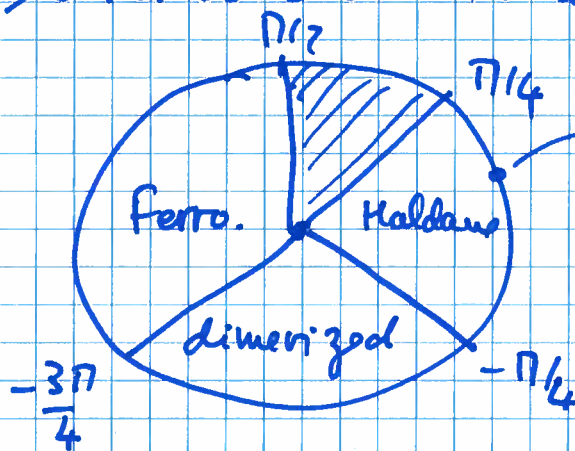 π/2
π/4
Ferro.
Haldane
dimerized
-3π/4
-π/4